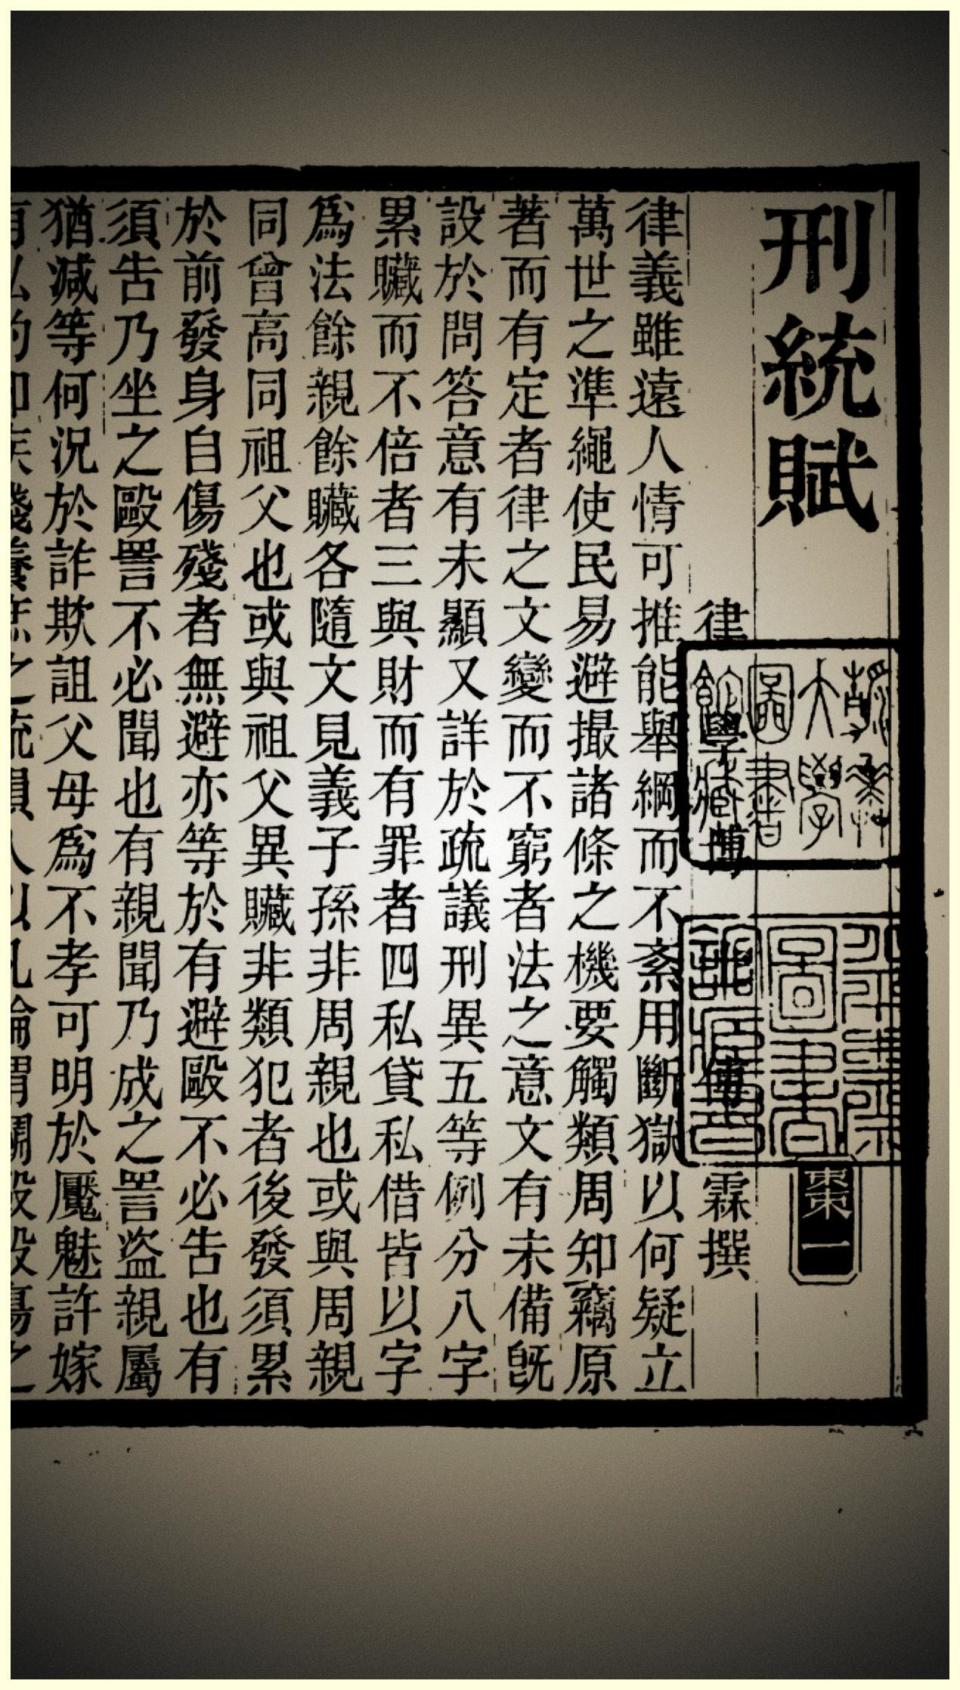 刑統賦
律學博士傅霖撰
律義雖遠人情可推能舉綱而不紊用斷獄以何疑立
萬世之準繩使民易避撮諸條之機要觸類周知竊原
著而有定者律之文變而不窮者法之意文有未備既
設於問答意有未顯又詳於疏議刑異五等例分八字
累贓而不倍者三與財而有罪者四私貸私借皆以字
爲法餘親餘贓各隨文見義子孫非周親也或與周親
同曾高同祖父也或與祖父異贓非類犯者後發須累
於前發身自傷殘者無避亦等於有避毆不必告也有
須告乃坐之毆詈不必聞也有親聞乃成之詈盜親屬
猶減等何況於詐欺詛父母爲不孝可明於魘魅許嫁
大學
圖書
圖書
一